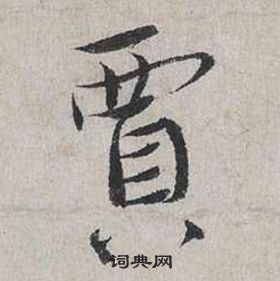 賈
词典网